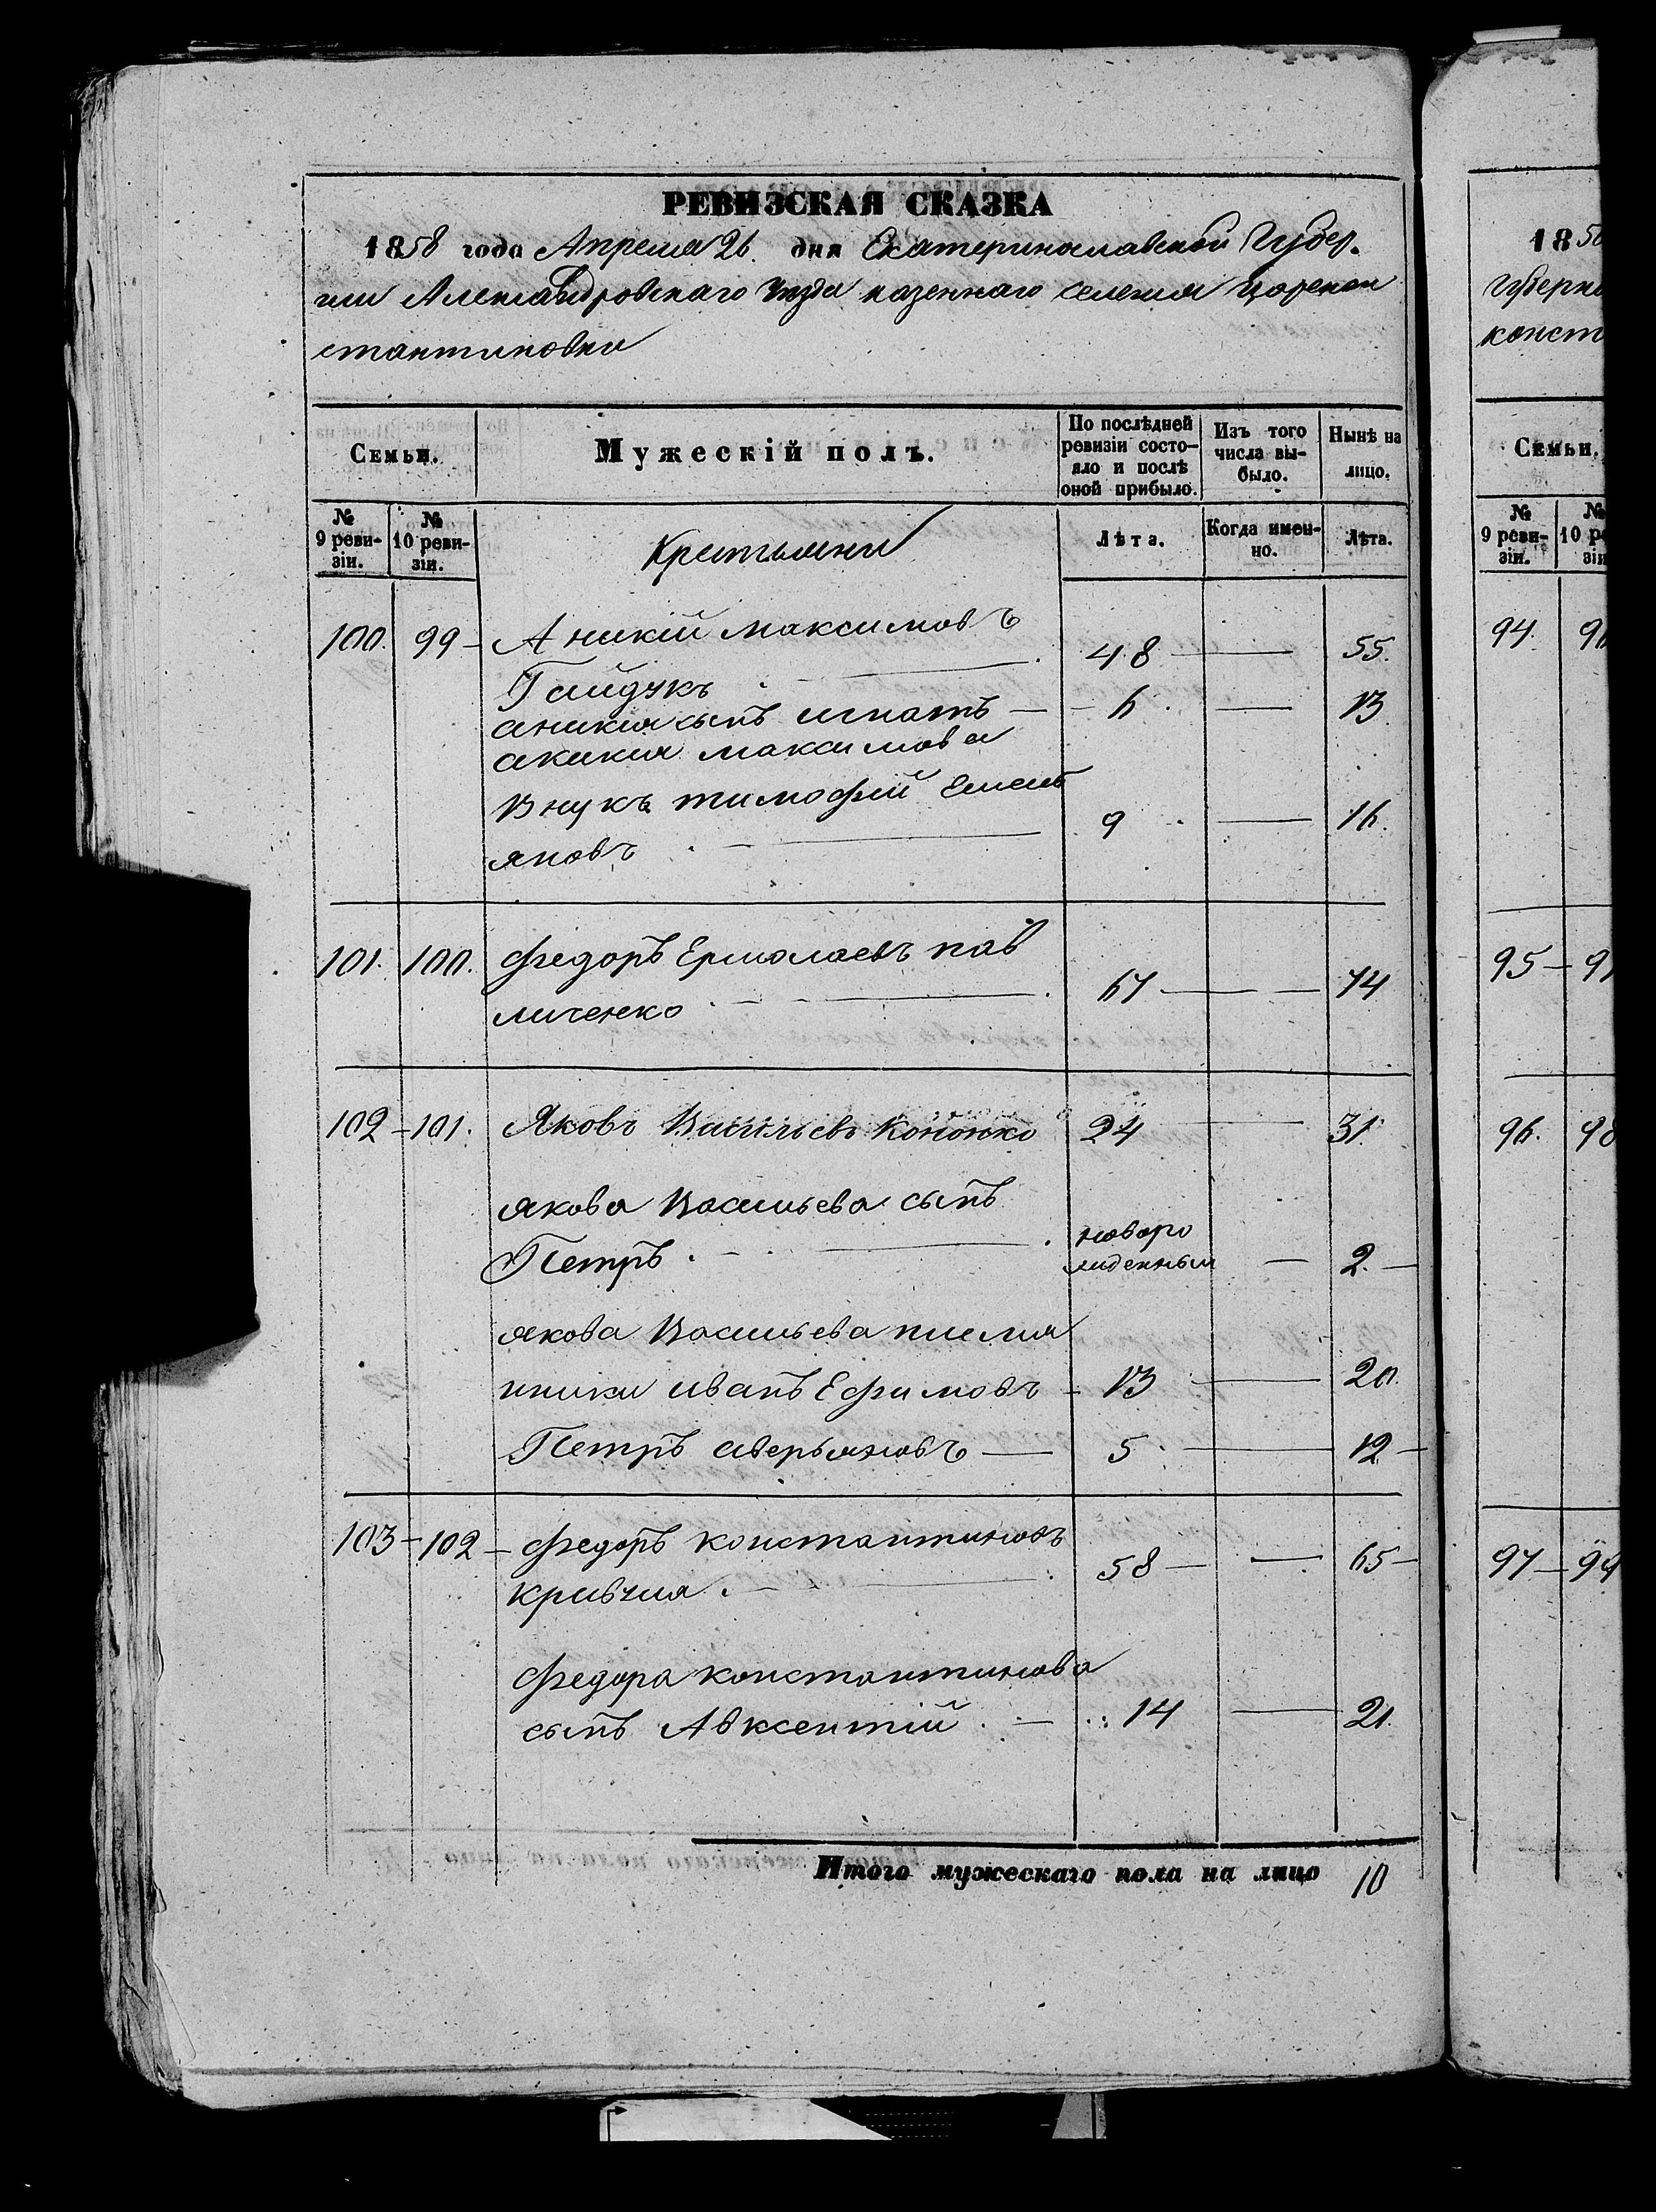 РЕВИЗСКАЯ СКАЗКА
1858 года Апреля 26. дня Екатеринославской Губер.
нии Александровскаго Уезда казеннаго селения Царекон
стантиновки
Семьи.
Мужескій полъ.
По послѣдней ревизіи состо-яло и послѣ оной прибыло.
Изъ того числа вы-было.
Нынѣ на лицо.
№ 9 реви-зіи.
№ 10 реви-зіи.
Крестьяни
Лѣта.
Когда имен-но.
Лѣта.
100. 99 - Аникій максимовъ
Гайдукъ 48 — 55.
аникия сынъ игнатъ — 6. — 13
акикия максимова
Внукъ тимофій Емель
яновъ 9 — 16.
101. 100. федоръ Ермолаевъ пав
личенко 67 — 74
102 - 101. Яковъ Васильевъ Кононко 24 — 31.
якова Васильева сынъ
Петръ новоро
жденный — 2. —
якова Васильева племя
нники иванъ Ефимовъ - 13 — 20.
Петръ аверьяновъ — 5 — 12 -
103 - 102 - федоръ константиновъ
кривчия 58 — 65 -
федора константинова
сынъ Авксентій. — 14 — 21.
Итого мужескаго пола на лицо 10
18
Губерн
конст
Семьи.
№ 9 реви-зіи.
№
94.
95 -
96. 98
97 - 99